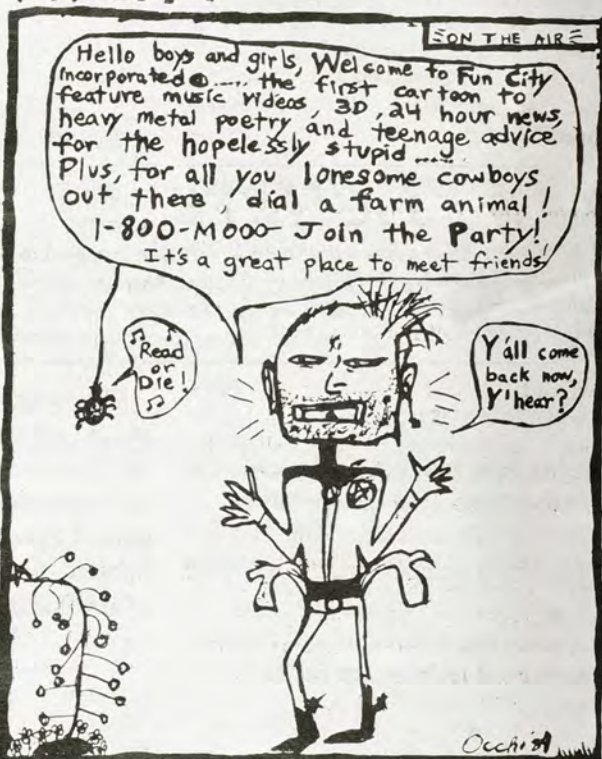 ON THE AIR
Hello boys and girls, Welcome to Fun City
incorporated ..... the first cartoon to
feature music videos, 3D, 24 hour news,
heavy metal poetry, and teenage advice
for the hopelessly stupid .....
Plus, for all you lonesome cowboys
out there, dial a farm animal!
1-800-MOOO- Join the Party!
It's a great place to meet friends!
Read
or
Die!
Y'all come
back now,
Y'hear?